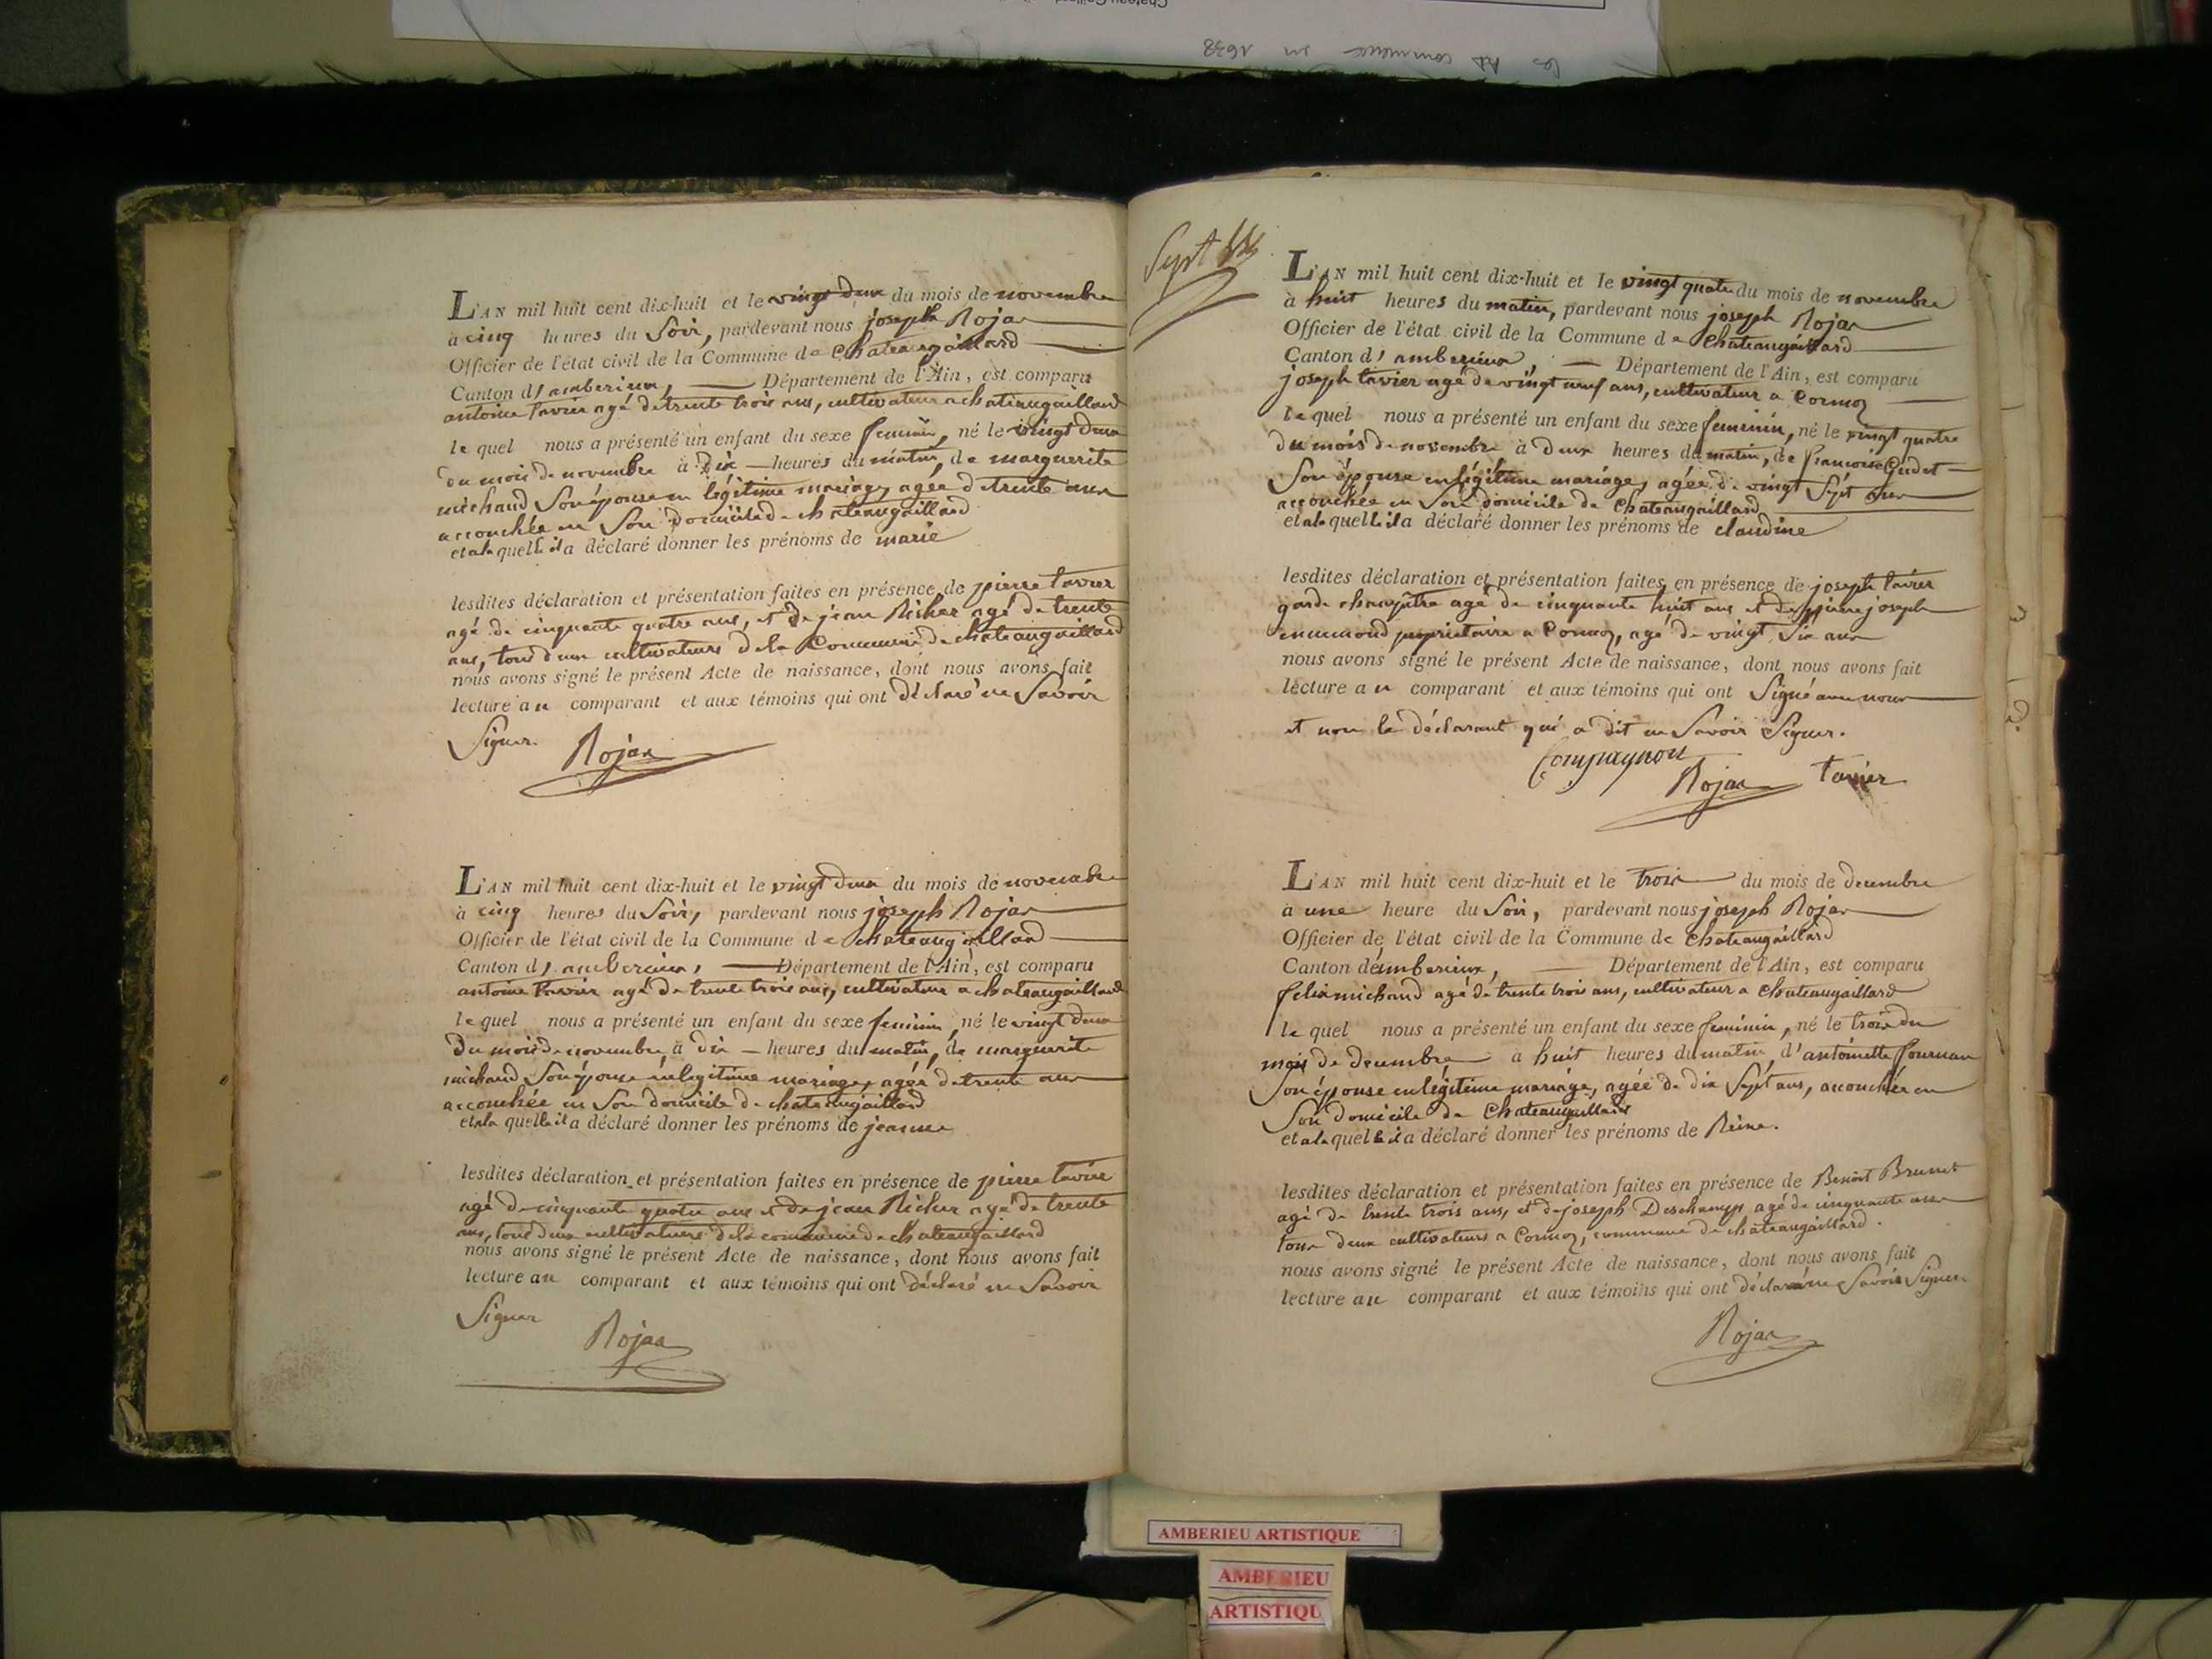 les AD commence en 1638
L'AN mil huit cent dix-huit et le vingt deux du mois de novembre
a cinq heures du Soir, pardevant nous joseph Rojar
Officier de l'état civil de la Commune de chateaugaillard
Canton d'amberieux, Département de l'Ain, est comparu
antoine tavier agé de trente trois ans, cultivateur a chateaugaillard
le quel nous a présenté un enfant du sexe feminin, né le vingt deux
du mois de novembre à Dix heures du matin, de marguerite
michaud Son épouse en légitime mariage, agée de trente ans
accouchée en Son domicile de chateaugaillard
et a la quelle il a déclaré donner les prénoms de marie
lesdites déclaration et présentation faites en présence de pierre tavier
agé de cinquante quatre ans, et de jean Richer agé de trente
ans, tous deux cultivateurs de la Commune de chateaugaillard
nous avons signé le présent Acte de naissance, dont nous avons fait
lecture au comparant et aux témoins qui ont déclaré ne Savoir
Signer. Rojar
L'AN mil huit cent dix-huit et le vingt deux du mois de novembre
à cinq heures du Soir, pardevant nous joseph Rojar
Officier de l'état civil de la Commune de chateaugaillard
Canton d'amberieux, Département de l'Ain, est comparu
antoine tavier agé de trente trois ans, cultivateur a chateaugaillard
le quel nous a présenté un enfant du sexe feminin, né le vingt deux
du mois de novembre à dix heures du matin, de marguerite
michaud Son épouse en legitime mariage, agée de trente ans
accouchée en Son domicile de chateaugaillard
et a la quelle il a déclaré donner les prénoms de jeanne
lesdites déclaration et présentation faites en présence de pierre tavier
agé de cinquante quatre ans et de jean Richer agé de trente
ans, tous deux cultivateurs de la commune de chateaugaillard
nous avons signé le présent Acte de naissance, dont nous avons fait
lecture au comparant et aux témoins qui ont déclaré ne Savoir
Signer
Rojar
Sept
L'AN mil huit cent dix-huit et le vingt quatre du mois de novembre
à huit heures du matin, pardevant nous joseph Rojar
Officier de l'état civil de la Commune de Chateaugaillard
Canton d'amberieux, Département de l'Ain, est comparu
joseph tavier agé de vingt neuf ans, cultivateur a Cormoz
le quel nous a présenté un enfant du sexe feminin, né le vingt quatre
du mois de novembre à deux heures du matin, de francoise Gudet
Son épouse en légitime mariage, agée de vingt Sept ans
accouchée en Son domicile de Chateaugaillard
et a la quelle il a déclaré donner les prénoms de claudine
lesdites déclaration et présentation faites en présence de joseph tavier
garde champêtre agé de cinquante huit ans et de pierre joseph
propriétaire a Cormoz, agé de vingt Six ans
nous avons signé le présent Acte de naissance, dont nous avons fait
lecture au comparant et aux témoins qui ont Signé avec nous
et non le déclarant qui a dit ne Savoir Signer.
Compagnon
Rojar tavier
L'AN mil huit cent dix-huit et le trois du mois de decembre
à une heure du Soir, pardevant nous joseph Rojar
Officier de l'état civil de la Commune de Chateaugaillard
Canton d'amberieux, Département de l'Ain, est comparu
felix michaud agé de trente trois ans, cultivateur a Chateaugaillard
le quel nous a présenté un enfant du sexe feminin, né le trois du
mois de decembre a huit heures du matin, d'antoinette fournan
Son épouse en légitime mariage, agée de dix Sept ans, accouchée en
Son domicile de Chateaugaillard
et a la quelle il a déclaré donner les prénoms de Reine.
lesdites déclaration et présentation faites en présence de Benoit Brunet
agé de trente trois ans, et de joseph Deschamps agé de cinquante ans
tous deux cultivateurs a Cormoz, commune de chateaugaillard.
nous avons signé le présent Acte de naissance, dont nous avons fait
lecture au comparant et aux témoins qui ont déclaré ne Savoir Signer
Rojar
AMBERIEU ARTISTIQUE
AMBERIEU
ARTISTIQU